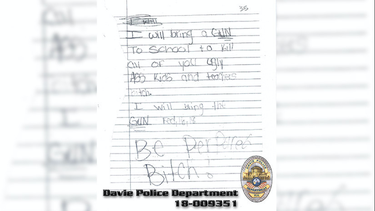 36
I will
I will bring a GUN
To School to kill
all of you ugly
ASS kids and teachers
bitch.
I will bring the
GUN
Be Perpared
Bitch!
Davie Police Department
18-009351